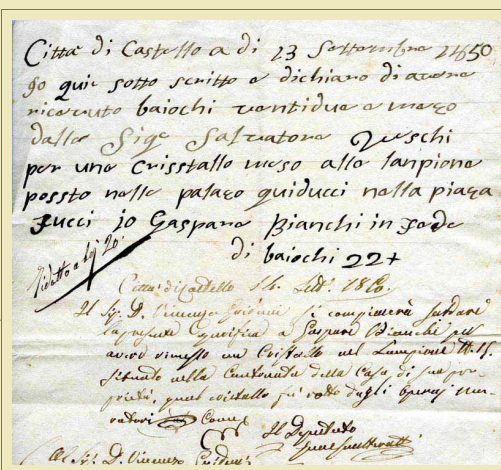 Citta di Castello a di 13 Settembre 1850
Io quie sotto scritto e dichiaro di avere
riceruto baiochi ventidue e mezo
dalle Sige Salvatore Veschi
per une crisstallo meso alle lanpione
possto nelle palazo quiducci nella piaza
Fucci io Gaspare Bianchi in Fede
di baiochi 22+
Città di Castello 14. Sett. 1850.
Il Sig. D. Vincenzo si compiacerà saldare
la presente a Gaspare Bianchi per
avere rimesso un Cristallo nel Lampione N. 15.
situato nella Contrada della Casa di sua pro-
prietà, qual cristallo fu rotto dagli Operaj mu-
ratori
Il Deputato
Al Sig. D. Vincenzo